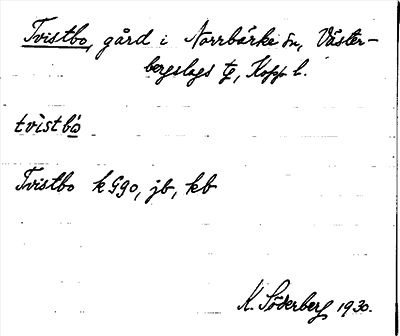 Tvistbo, gård i Norrbärke sn, Väster-
bergslags tg, Kopp l.
tvistbo
Tvistbo k Ggo, jb, kb
K. Söderberg 1930.